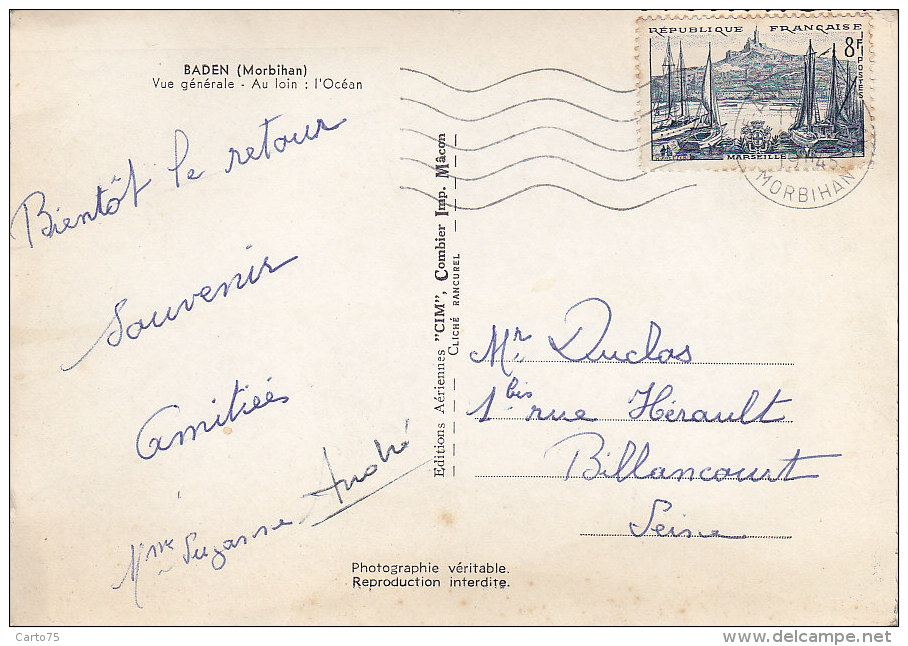 BADEN (Morbihan)
Vue générale - Au loin : l'Océan
Bientôt le retour
Souvenir
Amitiés
Mme Suzanne André
Editions Aériennes "CIM", Combier Imp. Mâcon
CLICHÉ RANCUREL
RÉPUBLIQUE FRANÇAISE
8F
POSTES
MARSEILLE
MORBIHAN
Mr. Duclos
1bis rue Hérault
Billancourt
Seine
Photographie véritable.
Reproduction interdite.
Carto75
http://www.delcampe.net